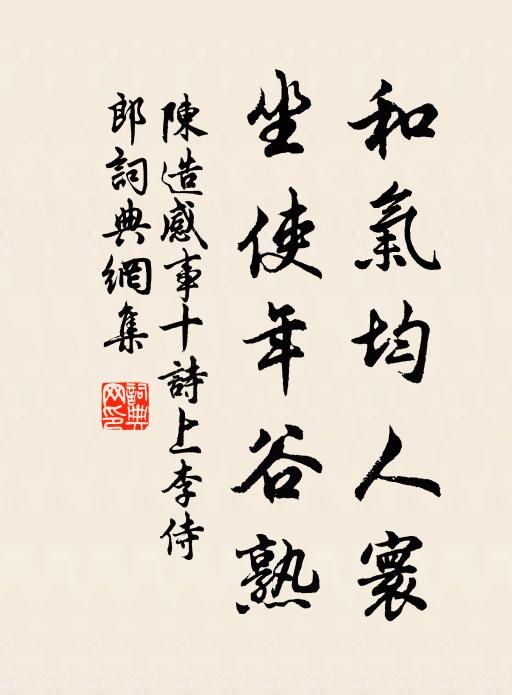 和氣均人寰
坐使年谷熟
陳造感事十詩上李侍
郎詞典網集
詞典
网印